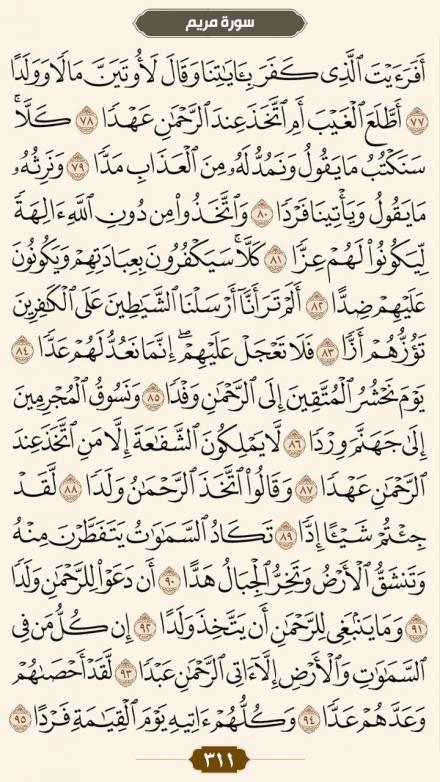 سورة مريم
أَفَرَءَيۡتَ ٱلَّذِي كَفَرَ بِـَٔايَٰتِنَا وَقَالَ لَأُوتَيَنَّ مَالٗا وَوَلَدًا
٧٧ أَطَّلَعَ ٱلۡغَيۡبَ أَمِ ٱتَّخَذَ عِندَ ٱلرَّحۡمَٰنِ عَهۡدٗا ٧٨ كَلَّاۚ
سَنَكۡتُبُ مَا يَقُولُ وَنَمُدُّ لَهُۥ مِنَ ٱلۡعَذَابِ مَدّٗا ٧٩ وَنَرِثُهُۥ
مَا يَقُولُ وَيَأۡتِينَا فَرۡدٗا ٨٠ وَٱتَّخَذُواْ مِن دُونِ ٱللَّهِ ءَالِهَةٗ
لِّيَكُونُواْ لَهُمۡ عِزّٗا ٨١ كَلَّاۚ سَيَكۡفُرُونَ بِعِبَادَتِهِمۡ وَيَكُونُونَ
عَلَيۡهِمۡ ضِدًّا ٨٢ أَلَمۡ تَرَ أَنَّآ أَرۡسَلۡنَا ٱلشَّيَٰطِينَ عَلَى ٱلۡكَٰفِرِينَ
تَؤُزُّهُمۡ أَزّٗا ٨٣ فَلَا تَعۡجَلۡ عَلَيۡهِمۡۖ إِنَّمَا نَعُدُّ لَهُمۡ عَدّٗا ٨٤
يَوۡمَ نَحۡشُرُ ٱلۡمُتَّقِينَ إِلَى ٱلرَّحۡمَٰنِ وَفۡدٗا ٨٥ وَنَسُوقُ ٱلۡمُجۡرِمِينَ
إِلَىٰ جَهَنَّمَ وِرۡدٗا ٨٦ لَّا يَمۡلِكُونَ ٱلشَّفَٰعَةَ إِلَّا مَنِ ٱتَّخَذَ عِندَ
ٱلرَّحۡمَٰنِ عَهۡدٗا ٨٧ وَقَالُواْ ٱتَّخَذَ ٱلرَّحۡمَٰنُ وَلَدٗا ٨٨ لَّقَدۡ
جِئۡتُمۡ شَيۡـًٔا إِدّٗا ٨٩ تَكَادُ ٱلسَّمَٰوَٰتُ يَتَفَطَّرۡنَ مِنۡهُ
وَتَنشَقُّ ٱلۡأَرۡضُ وَتَخِرُّ ٱلۡجِبَالُ هَدًّا ٩٠ أَن دَعَوۡاْ لِلرَّحۡمَٰنِ وَلَدٗا
٩١ وَمَا يَنۢبَغِي لِلرَّحۡمَٰنِ أَن يَتَّخِذَ وَلَدًا ٩٢ إِن كُلُّ مَن فِي
ٱلسَّمَٰوَٰتِ وَٱلۡأَرۡضِ إِلَّآ ءَاتِي ٱلرَّحۡمَٰنِ عَبۡدٗا ٩٣ لَّقَدۡ أَحۡصَىٰهُمۡ
وَعَدَّهُمۡ عَدّٗا ٩٤ وَكُلُّهُمۡ ءَاتِيهِ يَوۡمَ ٱلۡقِيَٰمَةِ فَرۡدًا ٩٥
٣١١